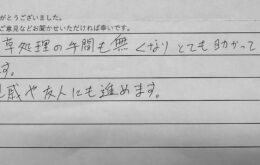 がとうございました。
ご意見などお聞かせいただければ幸いです。
草処理の手間も無くなりとても助かって
す。
戚や友人にも進めます。